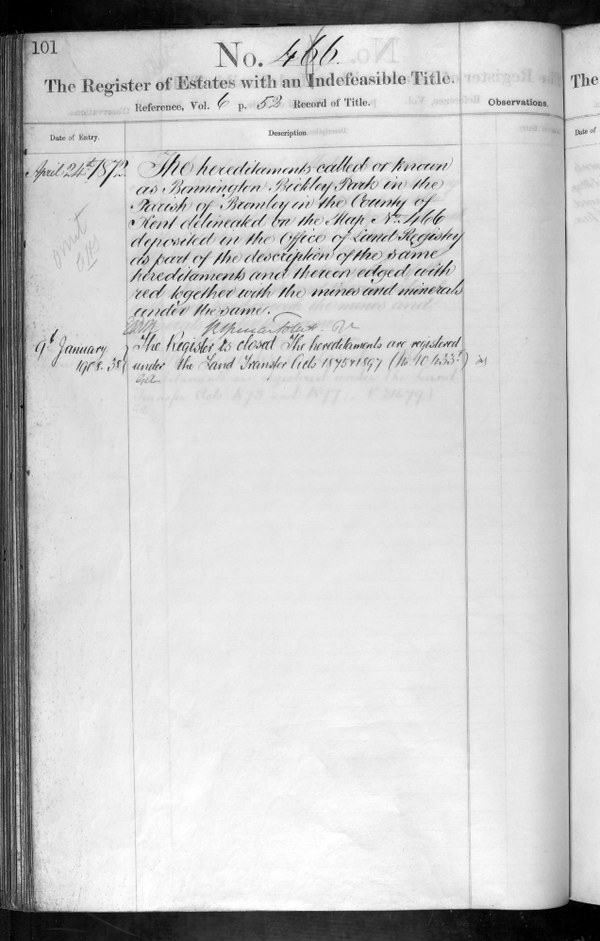 101
No. 466.
The Register of Estates with an Indefeasible Title.
Reference, Vol. 6 p. 52 Record of Title.
Observations.
Date of Entry.
Description.
April 24th 1872
The hereditaments called or known
as Bennington Bickley Park in the
Parish of Bromley in the County of
Kent delineated on the Map No. 466
deposited in the Office of Land Registry
as part of the description of the same
hereditaments and thereon edged with
red together with the mines and minerals
under the same.
9th January
1908.
The Register is closed The hereditaments are registered
under the Land Transfer Acts 1875 & 1897 (No 90433.)
The
Date of